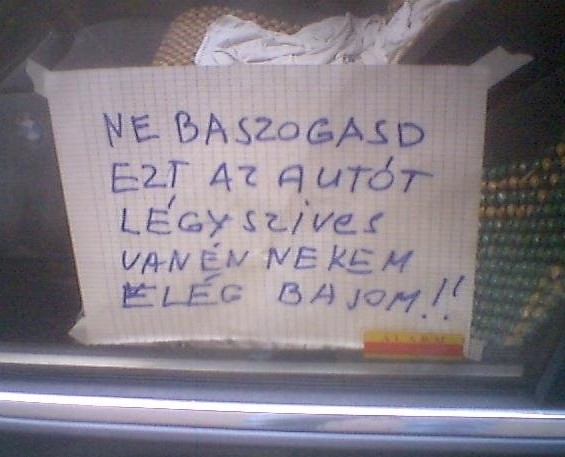 NE BASZOGASD
EZT AZ AUTÓT
LÉGYSZIVES
VANÉN NEKEM
ELÉG BAJOM!!
ALARM